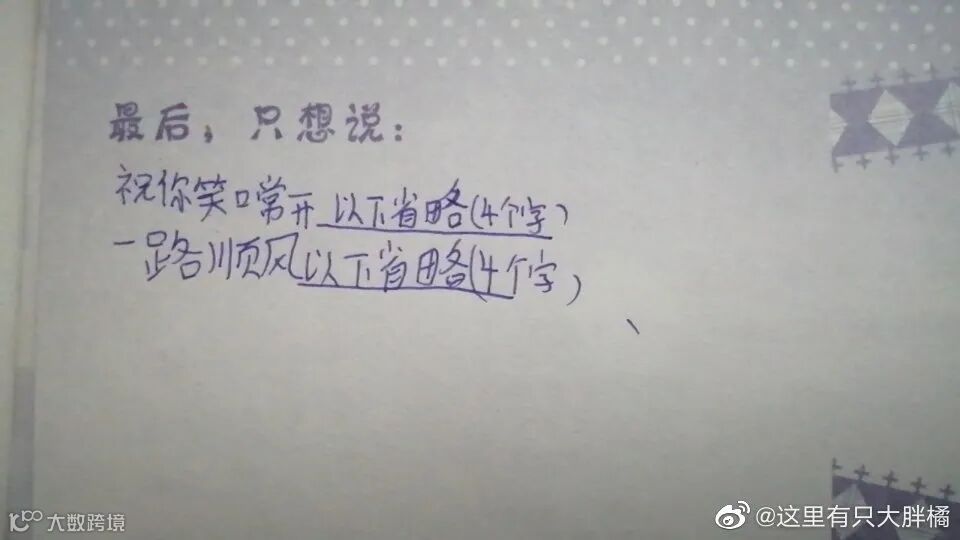 最后，只想说：
祝你笑口常开以下省略(4个字)
一路顺风以下省略(4个字)
大数跨境
@这里有只大胖橘